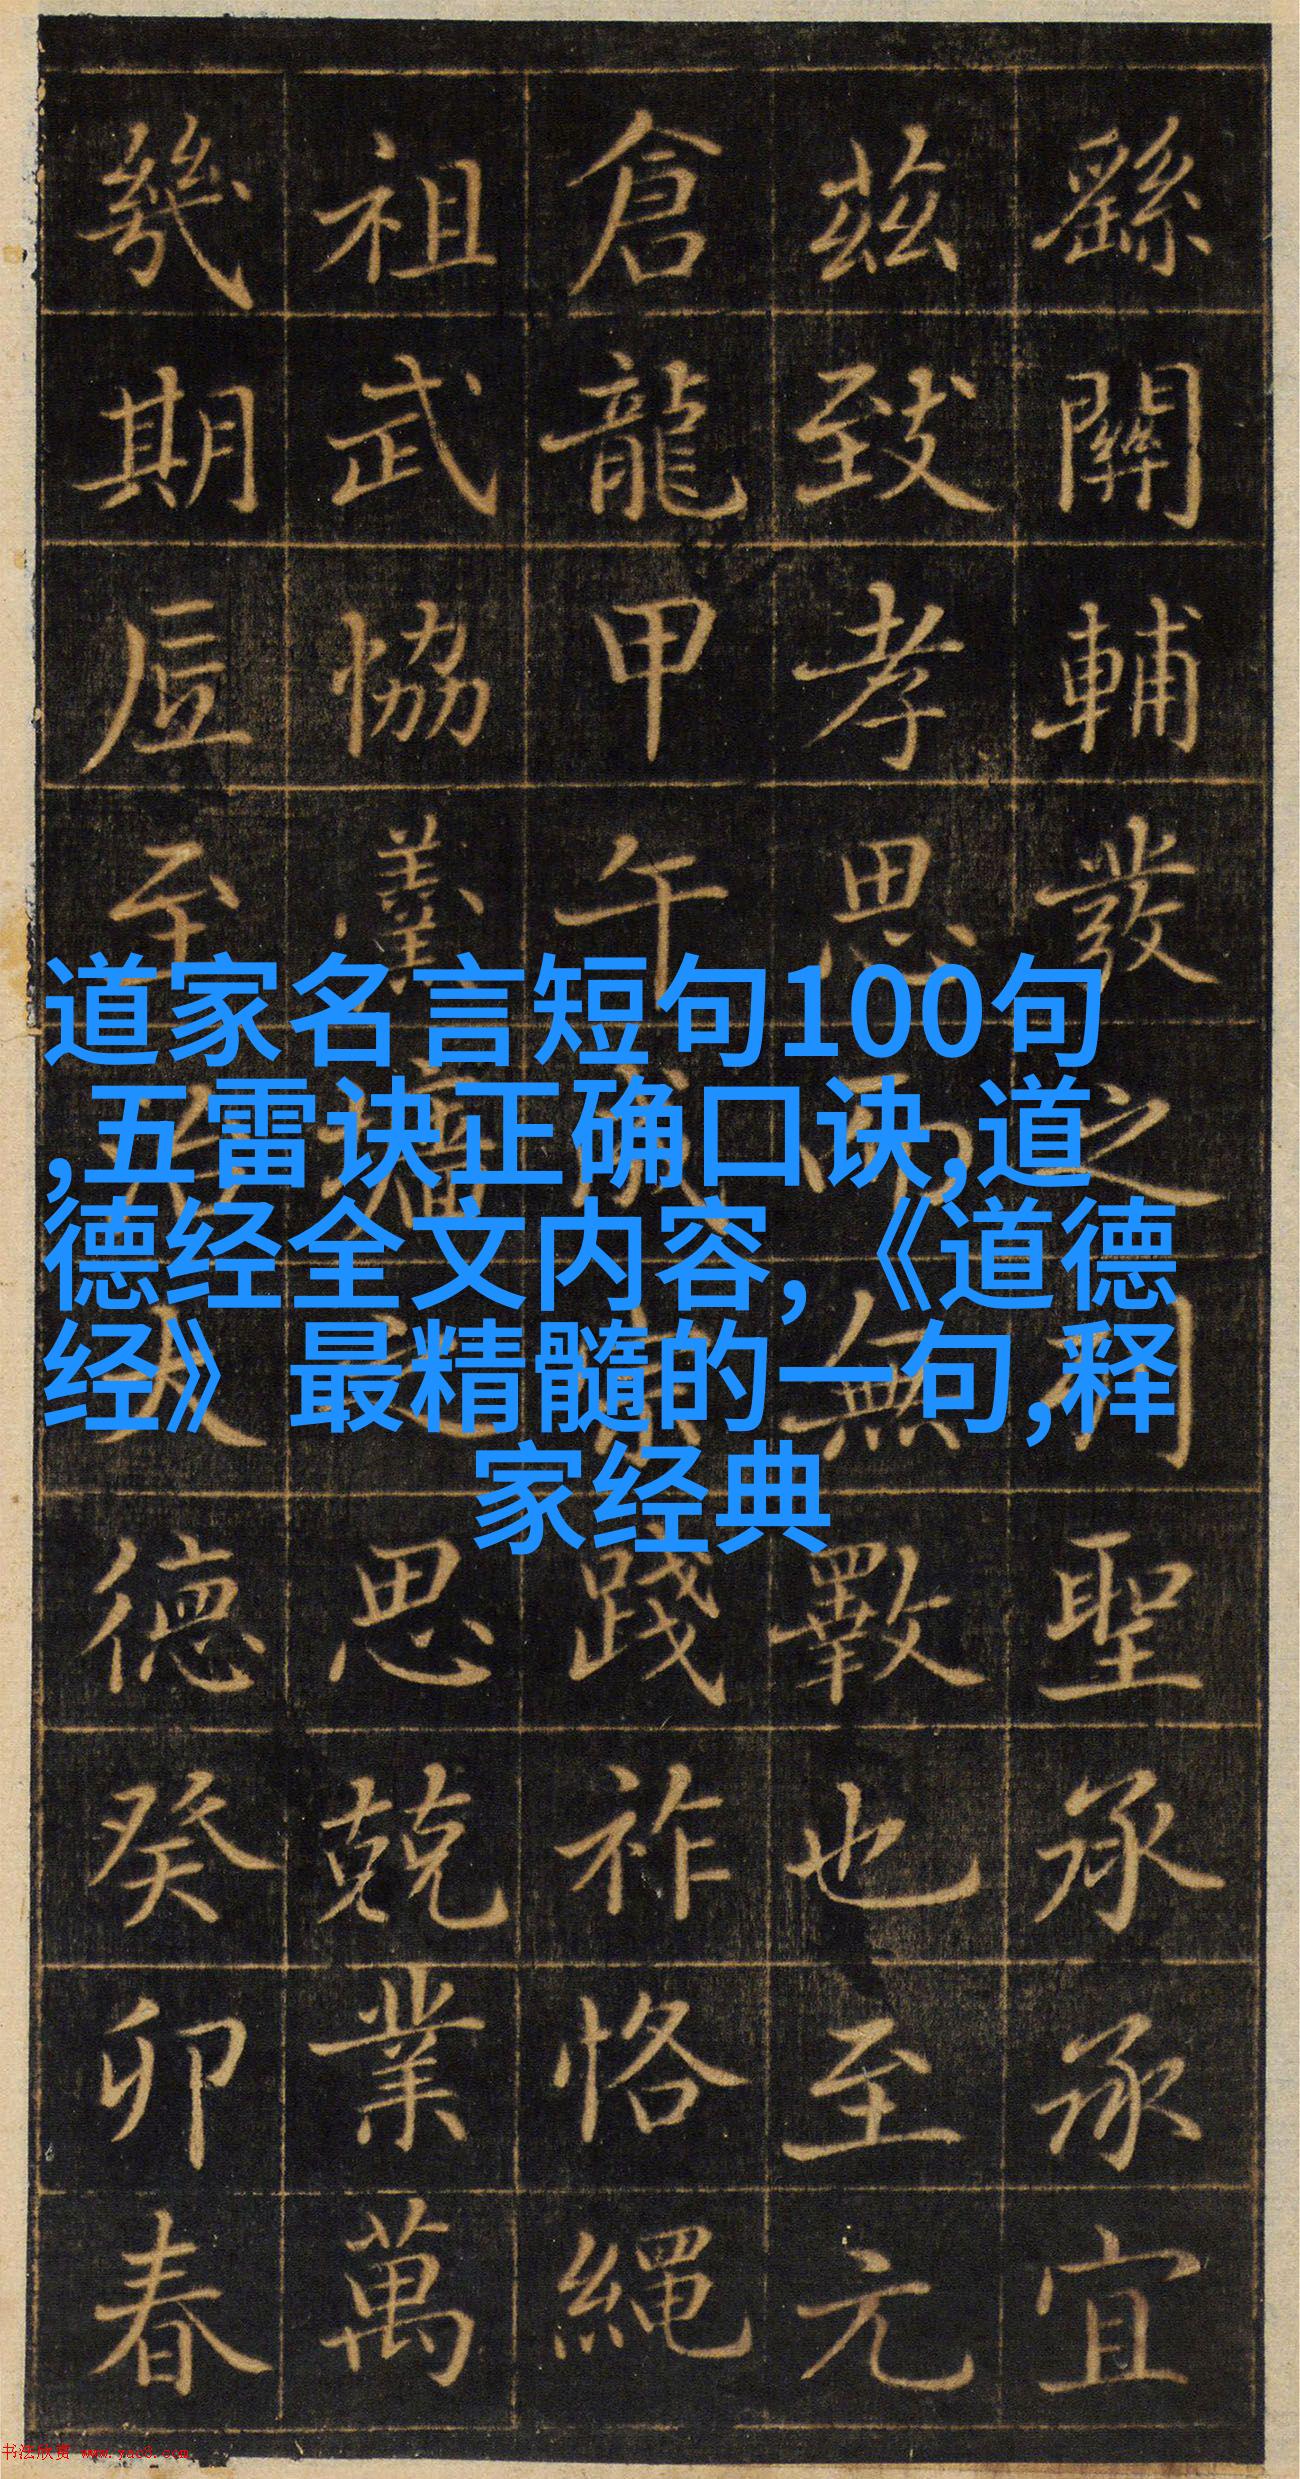 繇關輔發之聖承承宜
茲致孝思而無斁也至元
倉龍甲午成宗踐祚恪繩
祖武協羹墻之思兢業萬
幾期底至德癸卯春
道家名言短句100句
,五雷诀正确口诀,道
德经全文内容,《道德
经》最精髓的一句,释
家经典
书法欣赏 www.yac8.com